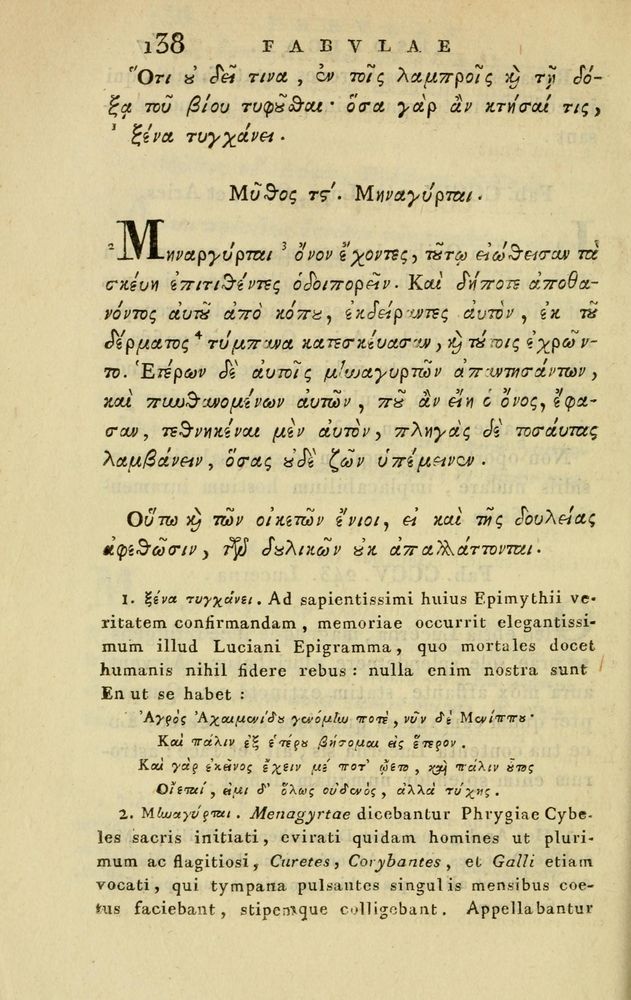 138 FABVLAE
Ὅτι ȣ δεῖ τινα, ἐν τοῖς λαμπροῖς ϗ τῇ δό-
ξᾳ τοῦ βίου τυφȣ͂σθαι· ὅσα γὰρ ἂν κτήσαί τις,
¹ ξένα τυγχάνει.
Μῦθος τϛʹ. Μηναγύρται.
² Μηναργύρται ³ ὄνον ἔχοντες, τȣ́τῳ εἰώθεισαν τὰ
σκεύη ἐπιτιθέντες ὁδοιπορεῖν. Καὶ δήποτε ἀποθα-
νόντος αὐτȣ͂ ἀπὸ κόπȣ, ἐκδείραντες αὐτὸν, ἐκ τȣ͂
δέρματος ⁴ τύμπανα κατεσκέυασαν, ϗ τȣ́τοις ἐχρῶν-
το. Ἑτέρων δὲ ἀυτοῖς μηναγυρτῶν ἀπαντησάντων,
καὶ πυνθανομένων ἀυτῶν, πȣ͂ ἂν εἴη ὁ ὄνος, ἔφα-
σαν, τεθνηκέναι μὲν ἀυτὸν, πληγὰς δὲ τοσάυτας
λαμβάνειν, ὅσας ȣ̓δὲ ζῶν ὑπέμεινεν.
Οὕτω ϗ τῶν οἰκετῶν ἔνιοι, εἰ καὶ τῆς δουλείας
ἀφεθῶσιν, τῶν δȣλικῶν ȣ̓κ ἀπαλλάττονται.
1. ξένα τυγχάνει. Ad sapientissimi huius Epimythii ve-
ritatem confirmandam, memoriae occurrit elegantissi-
mum illud Luciani Epigramma, quo mortales docet
humanis nihil fidere rebus: nulla enim nostra sunt
En ut se habet:
Ἀγρὸς Ἀχαιμενίδȣ γενόμην ποτὲ, νῦν δὲ Μενίππȣ·
Καὶ πάλιν ἐξ ἑτέρȣ βήσομαι εἰς ἕτερον.
Καὶ γὰρ ἐκεῖνος ἔχειν μέ ποτ' ᾤετο, καὶ πάλιν ȣ̔͂τος
Οἴεται, εἰμὶ δ' ὅλως ȣ̓δενὸς, ἀλλὰ τύχης.
2. Μηναγύρται. Menagyrtae dicebantur Phrygiae Cybe-
les sacris initiati, evirati quidam homines ut pluri-
mum ac flagitiosi, Curetes, Corybantes, et Galli etiam
vocati, qui tympana pulsantes singulis mensibus coe-
tus faciebant, stipemque colligebant. Appellabantur